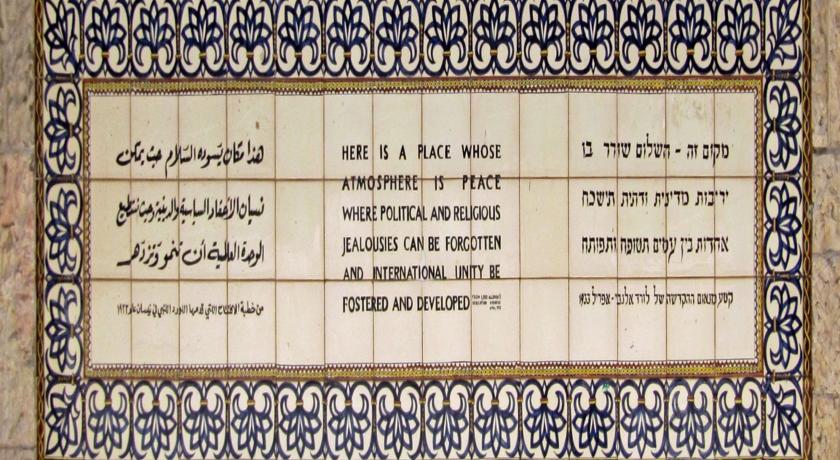 هذا مكان يسوده السلام حيث يمكن
نسيان الأحقاد السياسية والدينية وحيث تستطيع
الوحدة العالمية أن تنمو وتزدهر
من خطبة الافتتاح التي قدمها اللورد اللنبي في نيسان عام ١٩٣٣
HERE IS A PLACE WHOSE
ATMOSPHERE IS PEACE
WHERE POLITICAL AND RELIGIOUS
JEALOUSIES CAN BE FORGOTTEN
AND INTERNATIONAL UNITY BE
FOSTERED AND DEVELOPED
FROM LORD ALLENBY'S
DEDICATION
מקום זה - השלום שורר בו
יריבות מדינית ודתית תישכח
אחדות בין עמים תטופח ותפותח
קטע מנאום ההקדשה של לורד אלנבי - אפריל 1933